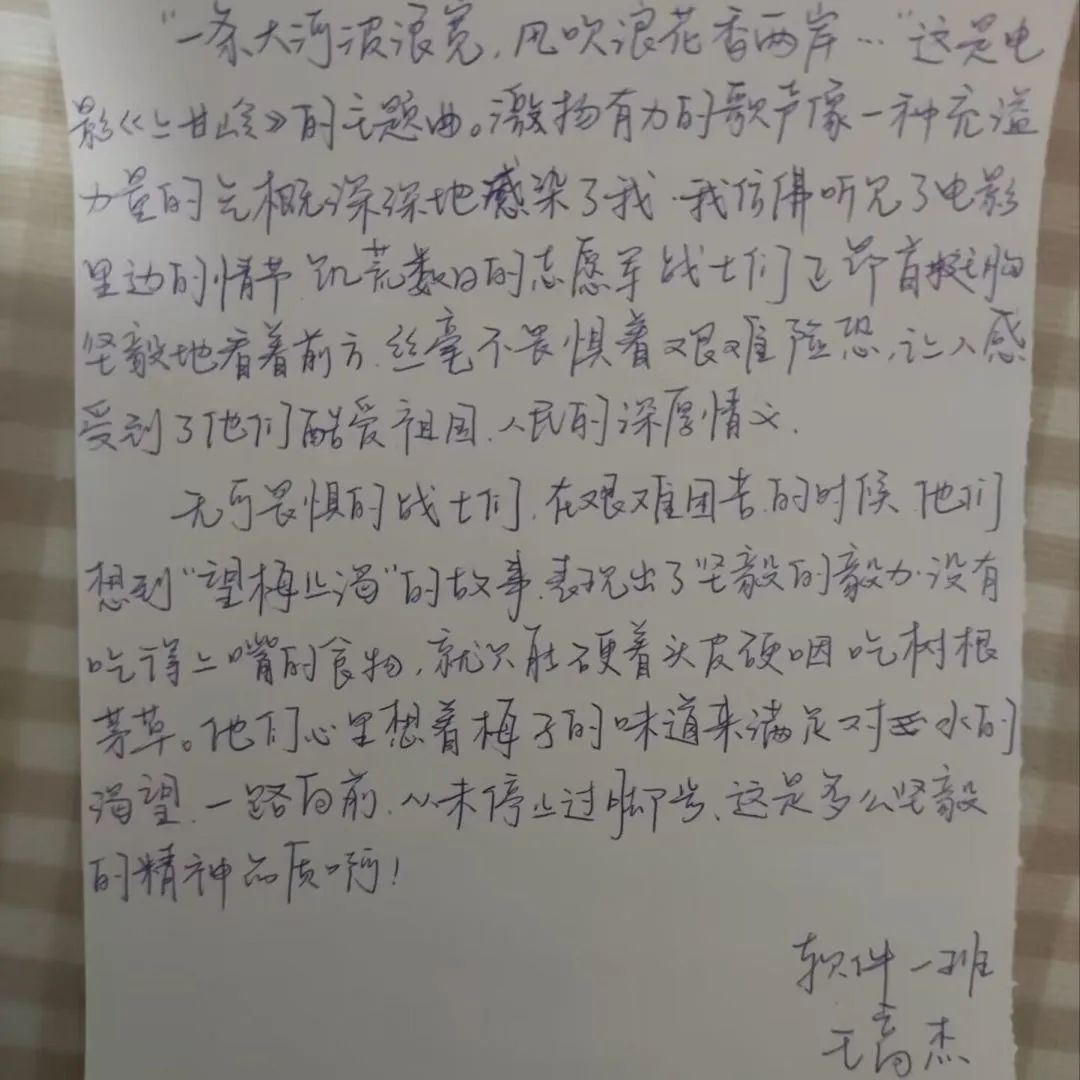 “一条大河波浪宽，风吹浪花香两岸…”这是电
影《上甘岭》的主题曲。激扬有力的歌声像一种充溢
力量的气概深深地感染了我.我仿佛听见了电影
里边的情节.饥荒数日的志愿军战士们正昂首挺胸
坚毅地看着前方.丝毫不畏惧着艰难险恶,让人感
受到了他们酷爱祖国.人民的深厚情义.
无可畏惧的战士们.在艰难困苦的时候.他们
想到“望梅止渴”的故事.表现出了坚毅的毅力.没有
吃得上嘴的食物,就只能硬着头皮硬咽吃树根
茅草。他们心里想着梅子的味道来满足对水的
渴望.一路向前.从未停止过脚步、这是多么坚毅
的精神品质啊!
软件一班
王高杰